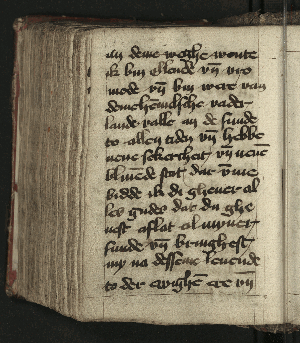 an deme weghe wente
ik bin ellende vn̄ vro
mode vn̄ bin vere van
deme hemelsche vader
lande valle an de sunde
to allen tiden vn̄ hebbe
nene sekerheit vn̄ nenē
bliuēde stat dar vm̄e
bidde ik di gheuer al
les gudes dat du ghe
uest aflat al myner
sunde vn̄ bringhest
my na desseme leuende
to der ewighē ere vn̄